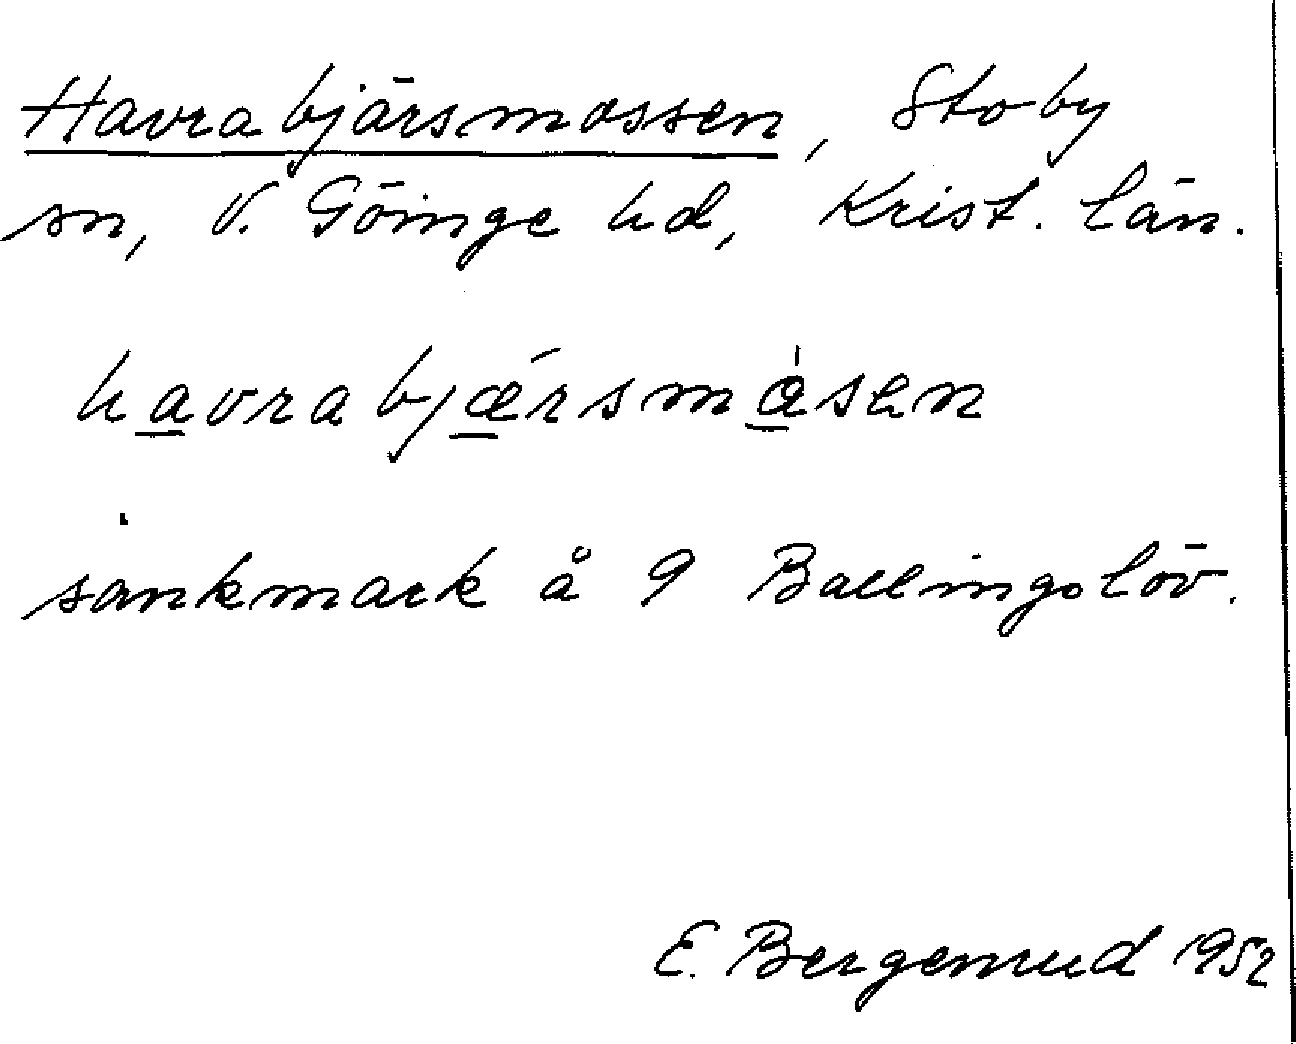 Havrabjärsmossen, Stoby
sn, V. Göinge hd, Krist. län.
havrabjǽrsmȧsen
sankmark å 9 Ballingslöv.
E. Bergemrud 1952